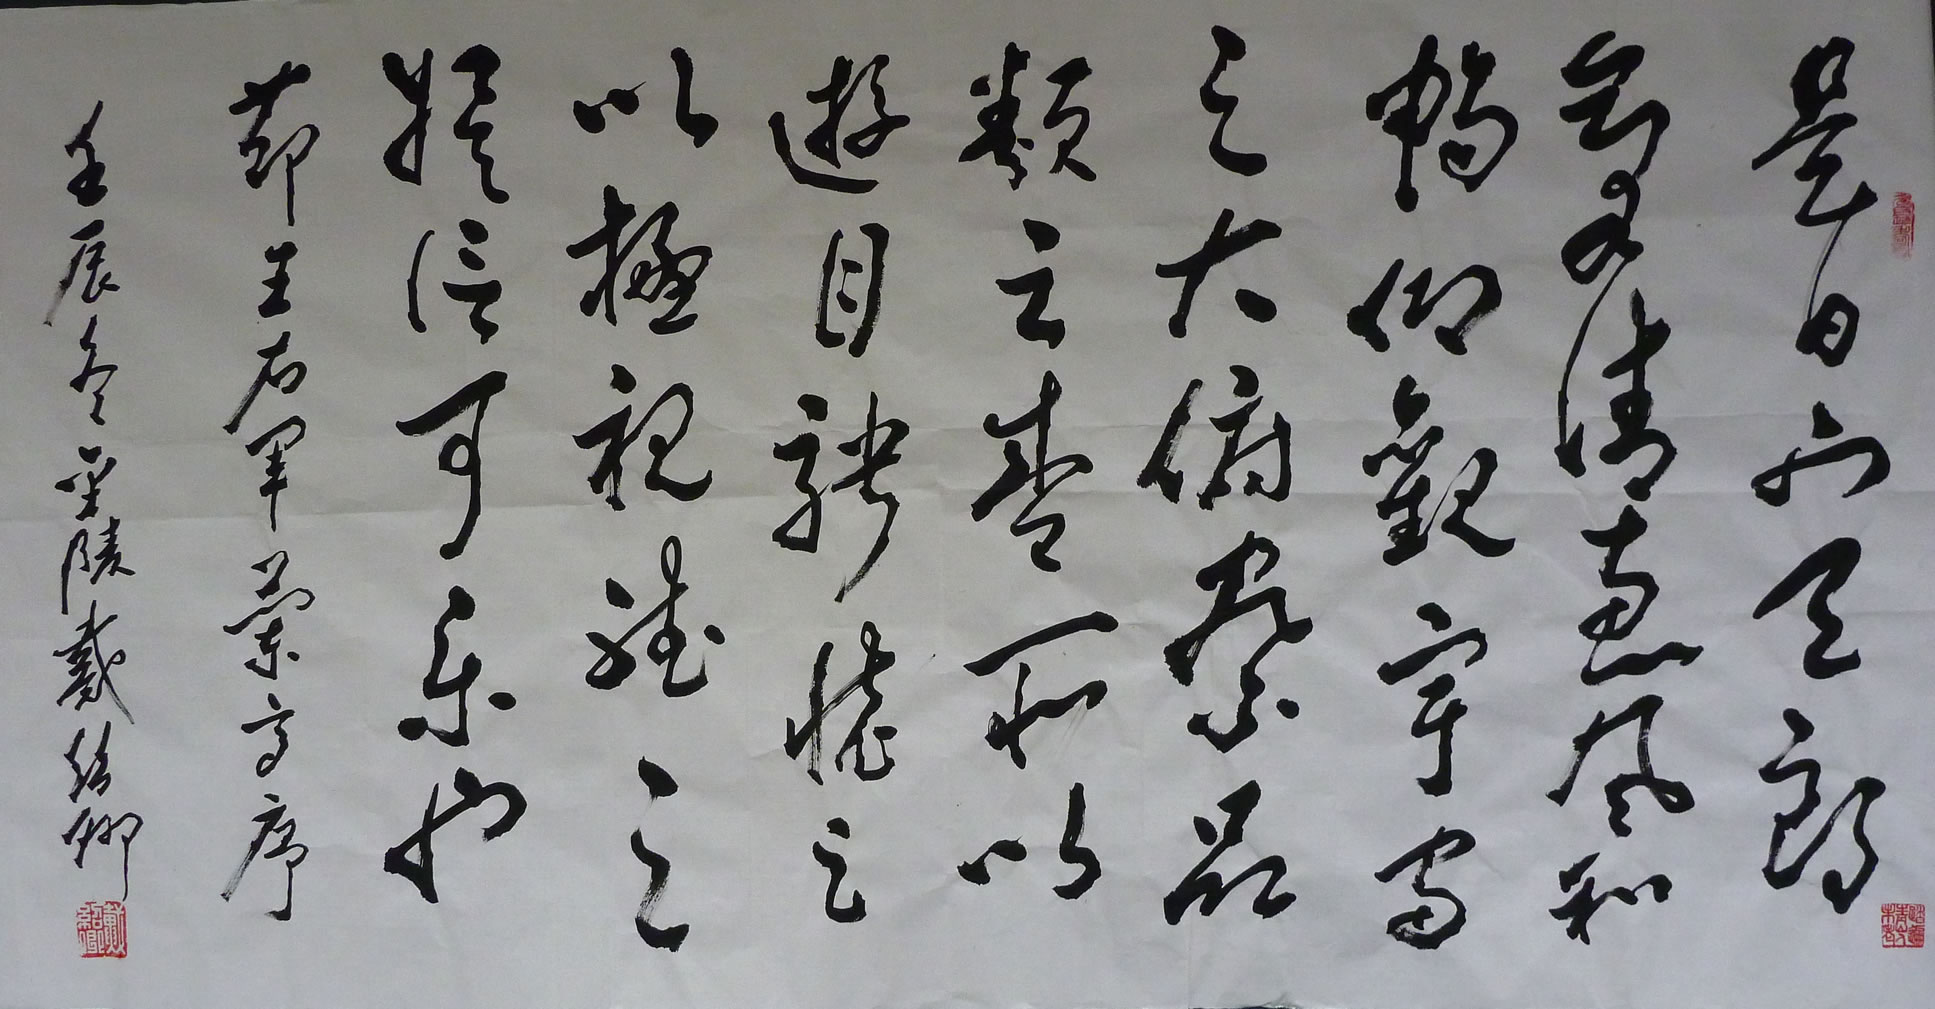 是日也天朗
氣清惠風和
暢仰觀宇宙
之大俯察品
類之盛所以
遊目騁懷足
以極視聽之
娛信可樂也
節王右軍蘭亭序
壬辰冬金陵戴紹卿
戴紹卿